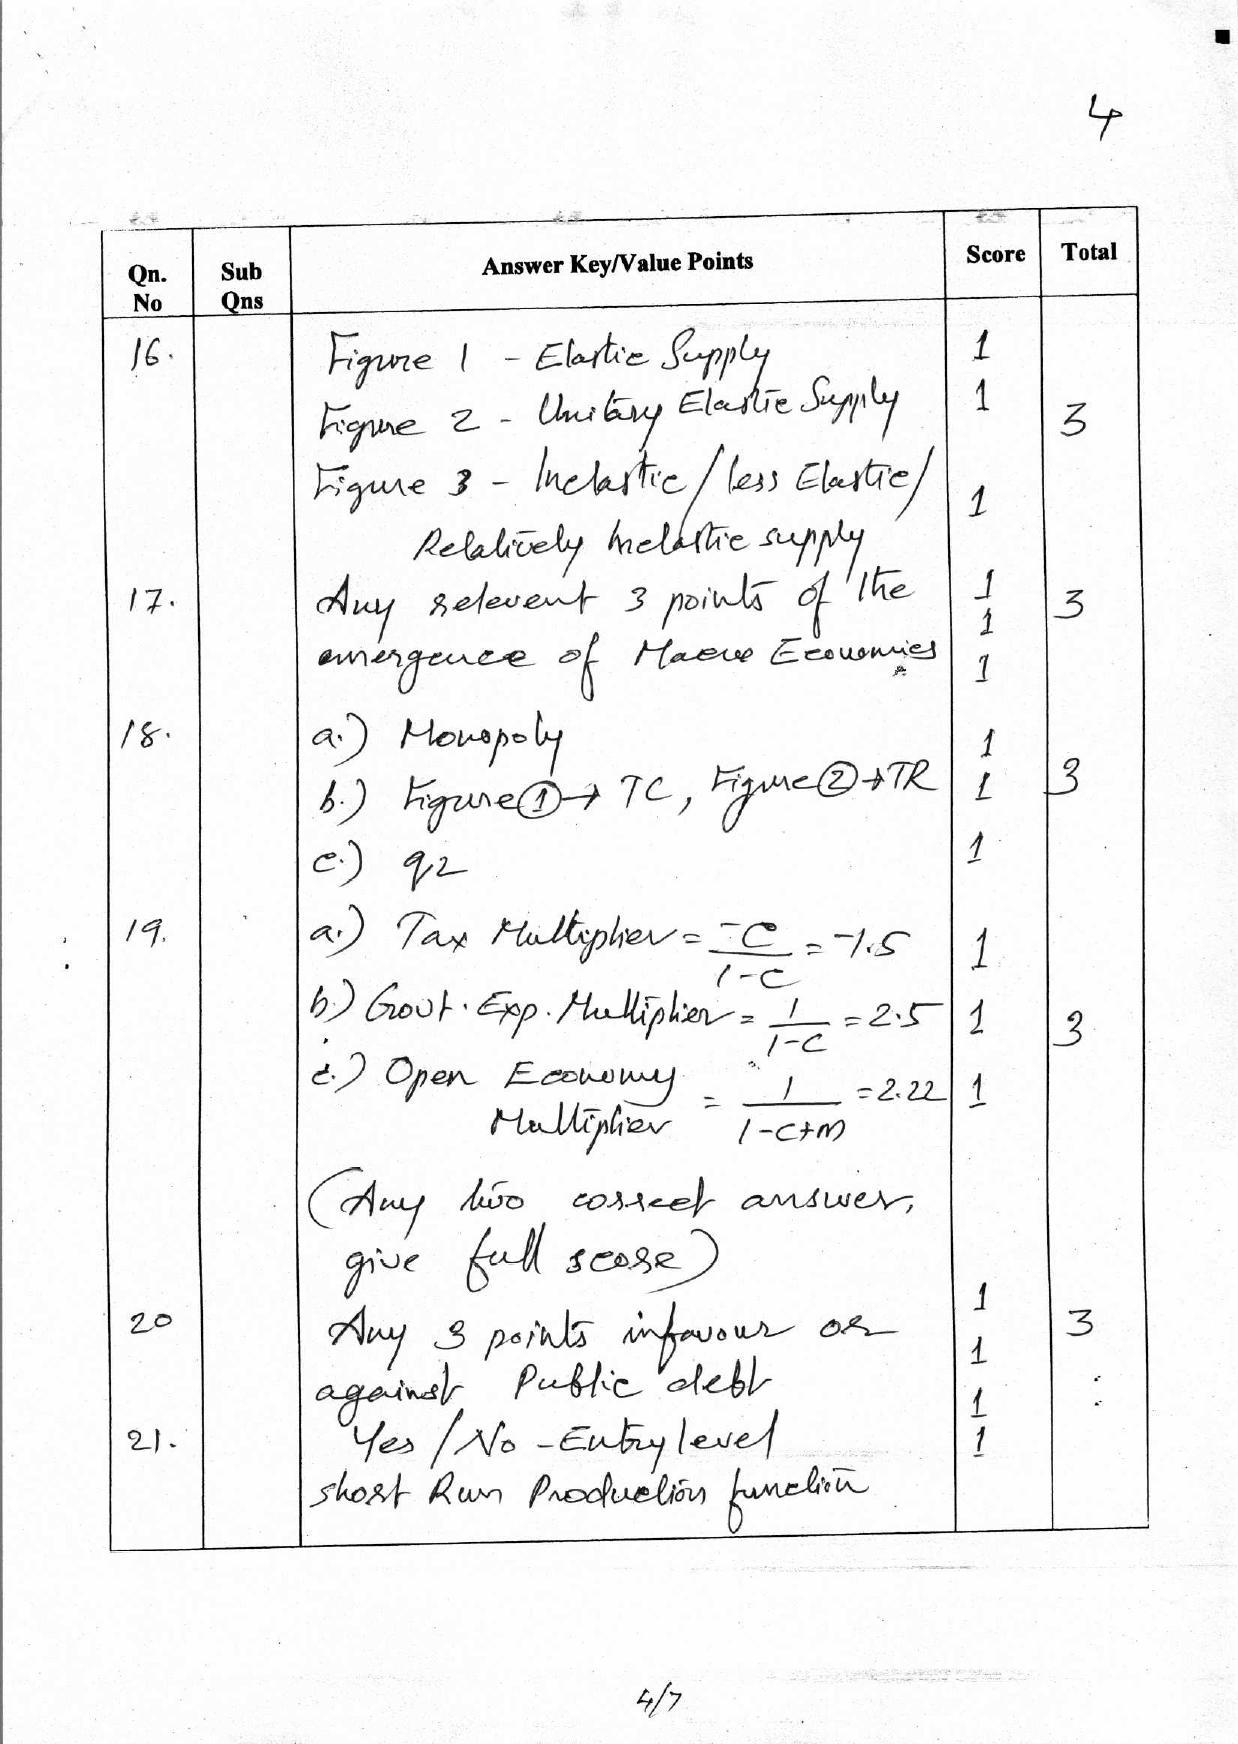 4
Qn. No Sub Qns Answer Key/Value Points Score Total
16. Figure 1 - Elastic Supply 1
Figure 2 - Unitary Elastic Supply 1 3
Figure 3 - Inelastic / less Elastic /
Relatively Inelastic supply 1
17. Any relevent 3 points of the 1 3
emergence of Macro Economics 1
1
18. a.) Monopoly 1
b.) Figure ① → TC, Figure ② → TR 1 3
c.) q2 1
19. a.) Tax Multiplier = -C / 1-C = -1.5 1
b.) Govt. Exp. Multiplier = 1 / 1-C = 2.5 1 3
c.) Open Economy
Multiplier = 1 / 1-C+M = 2.22 1
(Any two correct answer,
give full score)
20 Any 3 points infavour or 1 3
against Public debt 1
1
21. Yes / No - Entry level 1
short Run Production function
4/7